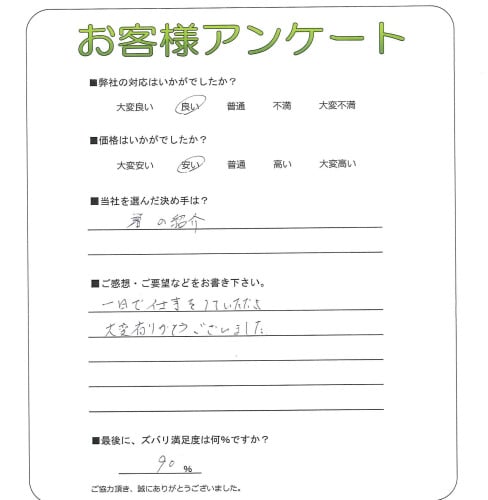 お客様アンケート
■弊社の対応はいかがでしたか?
大変良い 良い 普通 不満 大変不満
■価格はいかがでしたか?
大変安い 安い 普通 高い 大変高い
■当社を選んだ決め手は?
の紹介
■ご感想・ご要望などをお書き下さい。
一日で仕事をしていただき
大変有りがとうございました
■最後に、ズバリ満足度は何%ですか?
90 %
ご協力頂き、誠にありがとうございました。